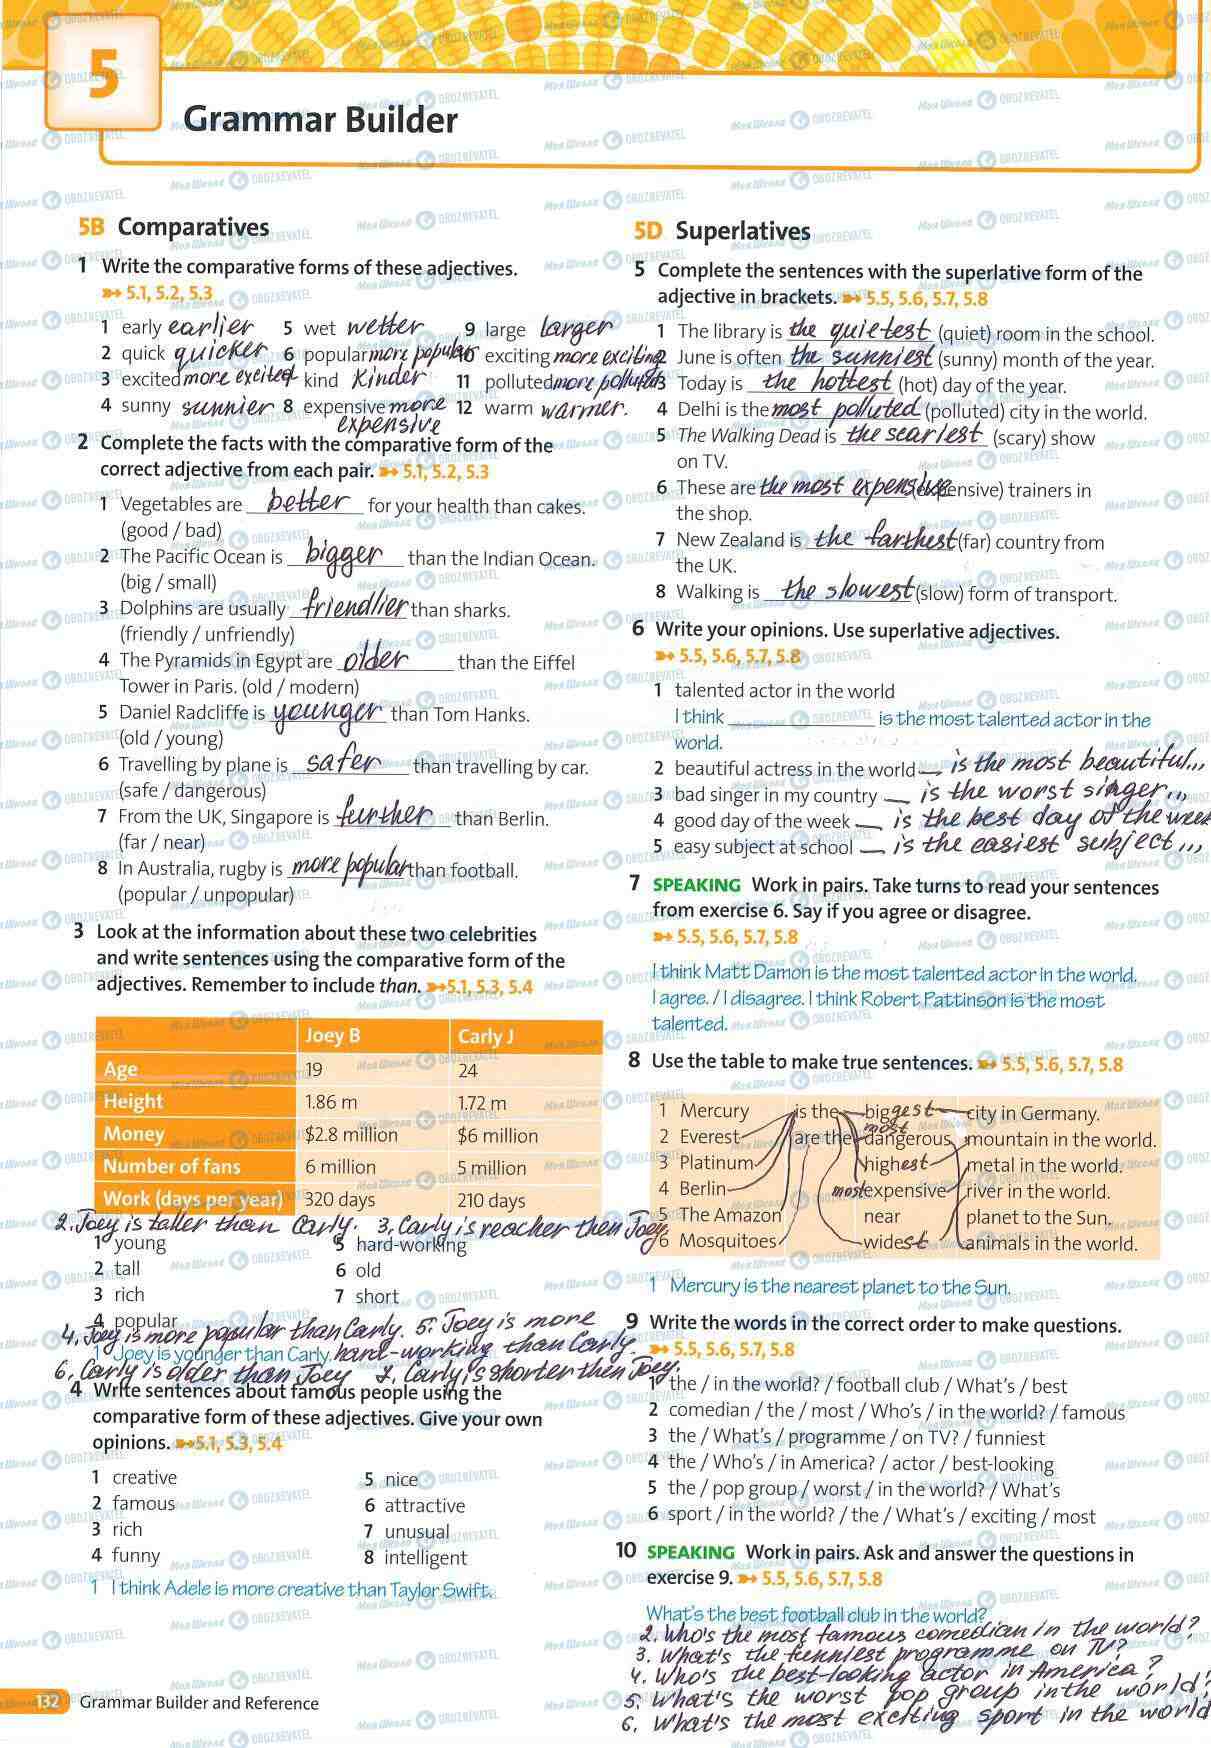 5
Grammar Builder
5B Comparatives
1 Write the comparative forms of these adjectives.
5.1, 5.2, 5.3
1 early earlier 5 wet wetter 9 large larger
2 quick quicker 6 popular more popular 10 exciting more exciting
3 excited more excited 7 kind kinder 11 polluted more polluted
4 sunny sunnier 8 expensive more expensive 12 warm warmer.
2 Complete the facts with the comparative form of the
correct adjective from each pair. 5.1, 5.2, 5.3
1 Vegetables are better for your health than cakes.
(good / bad)
2 The Pacific Ocean is bigger than the Indian Ocean.
(big / small)
3 Dolphins are usually friendlier than sharks.
(friendly / unfriendly)
4 The Pyramids in Egypt are older than the Eiffel
Tower in Paris. (old / modern)
5 Daniel Radcliffe is younger than Tom Hanks.
(old / young)
6 Travelling by plane is safer than travelling by car.
(safe / dangerous)
7 From the UK, Singapore is further than Berlin.
(far / near)
8 In Australia, rugby is more popular than football.
(popular / unpopular)
3 Look at the information about these two celebrities
and write sentences using the comparative form of the
adjectives. Remember to include than. 5.1, 5.3, 5.4
Joey B Carly J
Age 19 24
Height 1.86 m 1.72 m
Money $2.8 million $6 million
Number of fans 6 million 5 million
Work (days per year) 320 days 210 days
2. Joey is taller than Carly. 3. Carly is reacher then Joey
1 young 5 hard-working
2 tall 6 old
3 rich 7 short
4 popular
4. Joey is more popular than Carly. 5. Joey is more
1 Joey is younger than Carly. hard-working than Carly.
6. Carly is older than Joey 7. Carly is shorter then Joey.
4 Write sentences about famous people using the
comparative form of these adjectives. Give your own
opinions. 5.1, 5.3, 5.4
1 creative 5 nice
2 famous 6 attractive
3 rich 7 unusual
4 funny 8 intelligent
1 I think Adele is more creative than Taylor Swift.
132 Grammar Builder and Reference
5D Superlatives
5 Complete the sentences with the superlative form of the
adjective in brackets. 5.5, 5.6, 5.7, 5.8
1 The library is the quietest (quiet) room in the school.
2 June is often the sunniest (sunny) month of the year.
3 Today is the hottest (hot) day of the year.
4 Delhi is the most polluted (polluted) city in the world.
5 The Walking Dead is the scariest (scary) show
on TV.
6 These are the most expensive (expensive) trainers in
the shop.
7 New Zealand is the farthest (far) country from
the UK.
8 Walking is the slowest (slow) form of transport.
6 Write your opinions. Use superlative adjectives.
5.5, 5.6, 5.7, 5.8
1 talented actor in the world
I think ____ is the most talented actor in the
world.
2 beautiful actress in the world — is the most beautiful...
3 bad singer in my country — is the worst singer...
4 good day of the week — is the best day of the week
5 easy subject at school — is the easiest subject...
7 SPEAKING Work in pairs. Take turns to read your sentences
from exercise 6. Say if you agree or disagree.
5.5, 5.6, 5.7, 5.8
I think Matt Damon is the most talented actor in the world.
I agree. / I disagree. I think Robert Pattinson is the most
talented.
8 Use the table to make true sentences. 5.5, 5.6, 5.7, 5.8
1 Mercury is the biggest city in Germany.
2 Everest are the most dangerous mountain in the world.
3 Platinum highest metal in the world.
4 Berlin most expensive river in the world.
5 The Amazon near planet to the Sun.
6 Mosquitoes widest animals in the world.
1 Mercury is the nearest planet to the Sun.
9 Write the words in the correct order to make questions.
5.5, 5.6, 5.7, 5.8
1 the / in the world? / football club / What's / best
2 comedian / the / most / Who's / in the world? / famous
3 the / What's / programme / on TV? / funniest
4 the / Who's / in America? / actor / best-looking
5 the / pop group / worst / in the world? / What's
6 sport / in the world? / the / What's / exciting / most
10 SPEAKING Work in pairs. Ask and answer the questions in
exercise 9. 5.5, 5.6, 5.7, 5.8
What's the best football club in the world?
2. Who's the most famous comedian in the world?
3. What's the funniest programme on TV?
4. Who's the best-looking actor in America?
5. What's the worst pop group in the world?
6. What's the most exciting sport in the world